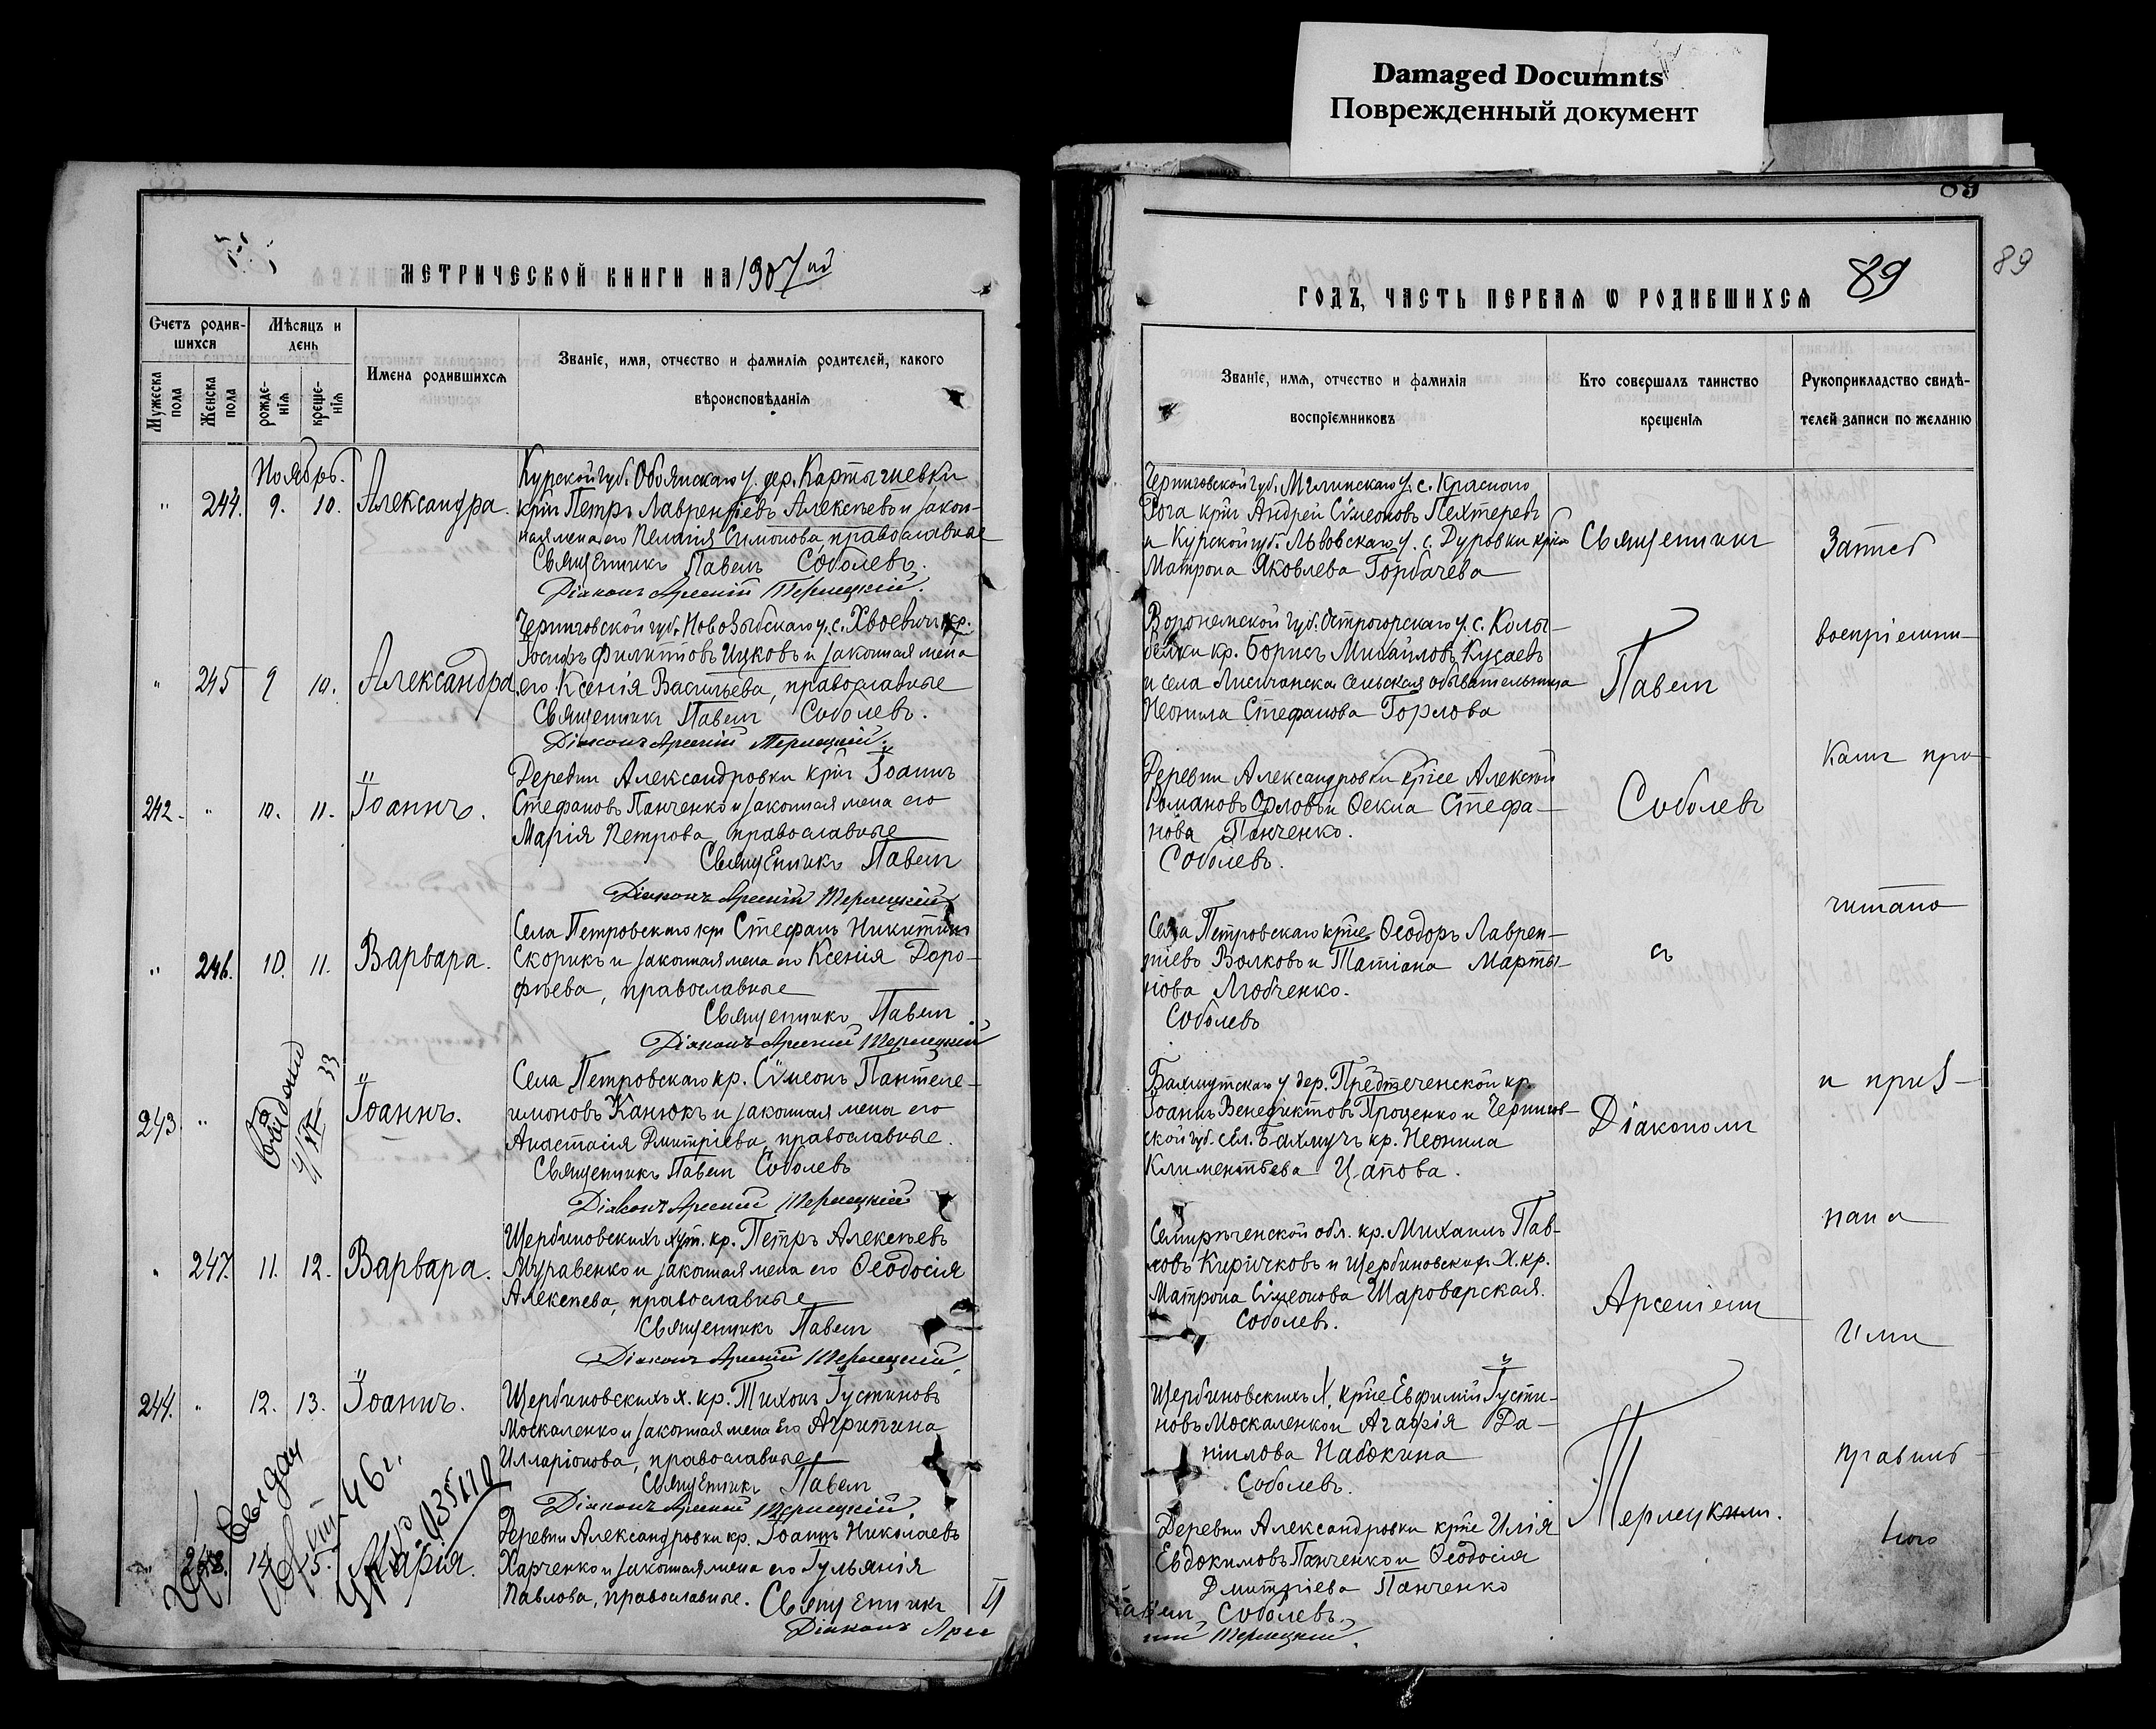 Damaged Documnts
Поврежденный документ
МЕТРИЧЕСКОЙ КНИГИ НА 1907 ый
Счетъ родив-
шихся
Мѣсяцъ и
день
Имена родившихся
Званіе, имя, отчество и фамилія родителей, какого
вѣроисповѣданія
Мужеска
пола
Женска
пола
рожде-
нія
креще-
нія
Ноябрь.
" 244. 9. 10. Александра.
Курской губ. Обоянскаго у. дер. Картышевки
кр͞нъ Петръ Лаврентіевъ Алексѣевъ и закон-
ная жена его Пелагія Симонова, православные
Священникъ Павелъ Соболевъ.
Діаконъ Арсеній Терлецкій.
" 245 9 10. Александра
Черниговской губ. Новозыбскаго у. с. Хвоевичи кр.
Іосифъ Филиповъ Ицковъ и законная жена
его Ксенія Васильева, православные
Священникъ Павелъ Соболевъ.
Діаконъ Арсеній Терлецкій.
242. " 10. 11. Іоаннъ.
Деревни Александровки кр͞нъ Іоаннъ
Стефановъ Панченко и законная жена его
Марія Петрова, православные
Священникъ Павелъ
Діаконъ Арсеній Терлецкій
" 246. 10. 11. Варвара.
Села Петровскаго кр͞н Стефанъ Никитинъ
Скорикъ и законная жена его Ксенія Доро-
фѣева, православные
Священникъ Павелъ
Діаконъ Арсеній Терлецкій
243 " Іоаннъ.
4/IV 33
Села Петровскаго кр. Сѵмеонъ Пантеле-
имоновъ Канюкъ и законная жена его
Анастасія Дмитріева, православные.
Священникъ Павелъ Соболевъ
Діаконъ Арсеній Терлецкій
" 247. 11. 12. Варвара.
Щербиновскихъ хут. кр. Петръ Алексѣевъ
Муравенко и законная жена его Ѳеодосія
Алексѣева, православные
Священникъ Павелъ
Діаконъ Арсеній Терлецкій
244. " 12. 13. Іоаннъ.
Щербиновскихъ х. кр. Тихонъ Іустиновъ
Москаленко и законная жена его Агрипина
Илларіонова, православные
Священникъ Павелъ
Діаконъ Арсеній Терлецкій.
248. 14. 15. Марія.
46 г.
Деревни Александровки кр. Іоаннъ Николаевъ
Харченко и законная жена его Іульянія
Павлова, православные. Священникъ П
Діаконъ Арсе
89
89
89
ГОДЪ, ЧАСТЬ ПЕРВАЯ Ѡ РОДИВШИХСЯ
Званіе, имя, отчество и фамилія
воспріемниковъ
Кто совершалъ таинство
крещенія
Рукоприкладство свидѣ-
телей записи по желанію
Черниговской губ. Мглинскаго у. с. Красного
Рога кр͞нъ Андрей Сѵмеоновъ Пехтеревъ
и Курской губ. Львовскаго у. с. Дуровки кр͞нка
Матрона Яковлева Горбачева
Воронежской губ. Острогорскаго у. с. Колы-
белки кр. Борисъ Михайловъ Кусаевъ
и села Лисичанска сельская обывательница
Неонила Стефанова Горлова
Деревни Александровки кр͞не Алексѣй
Романовъ Орловъ и Ѳекла Стефа-
нова Панченко.
Соболевъ.
Села Петровскаго кр͞не Ѳеодоръ Лаврен-
тіевъ Волковъ и Татіана Марты-
нова Любченко.
Соболевъ
Бахмутскаго у дер. Предтеченской кр.
Іоаннъ Венедиктовъ Проценко и Чернигов-
ской губ. сел. Бахмучъ кр. Неонила
Климентьева Цапова.
Семирѣченской обл. кр. Михаилъ Пав-
ловъ Киричковъ и Щербиновскихъ Х. кр.
Матрона Сѵмеонова Шароварская.
Соболевъ.
Щербиновскихъ Х. кр͞не Евфимій Іусти-
новъ Москаленко и Агафія Да-
ніилова Набокина
Соболевъ.
Деревни Александровки кр͞не Илія
Евдокимовъ Панченко и Ѳеодосія
Дмитріева Панченко
авелъ Соболевъ.
ній Терлецкій.
Священникъ
Павелъ
Соболевъ
съ
Діакономъ
Арсеніемъ
Терлецкимъ.
Запись
воспріемни-
камъ про-
читана
и приз-
нана
ими
правиль-
ною